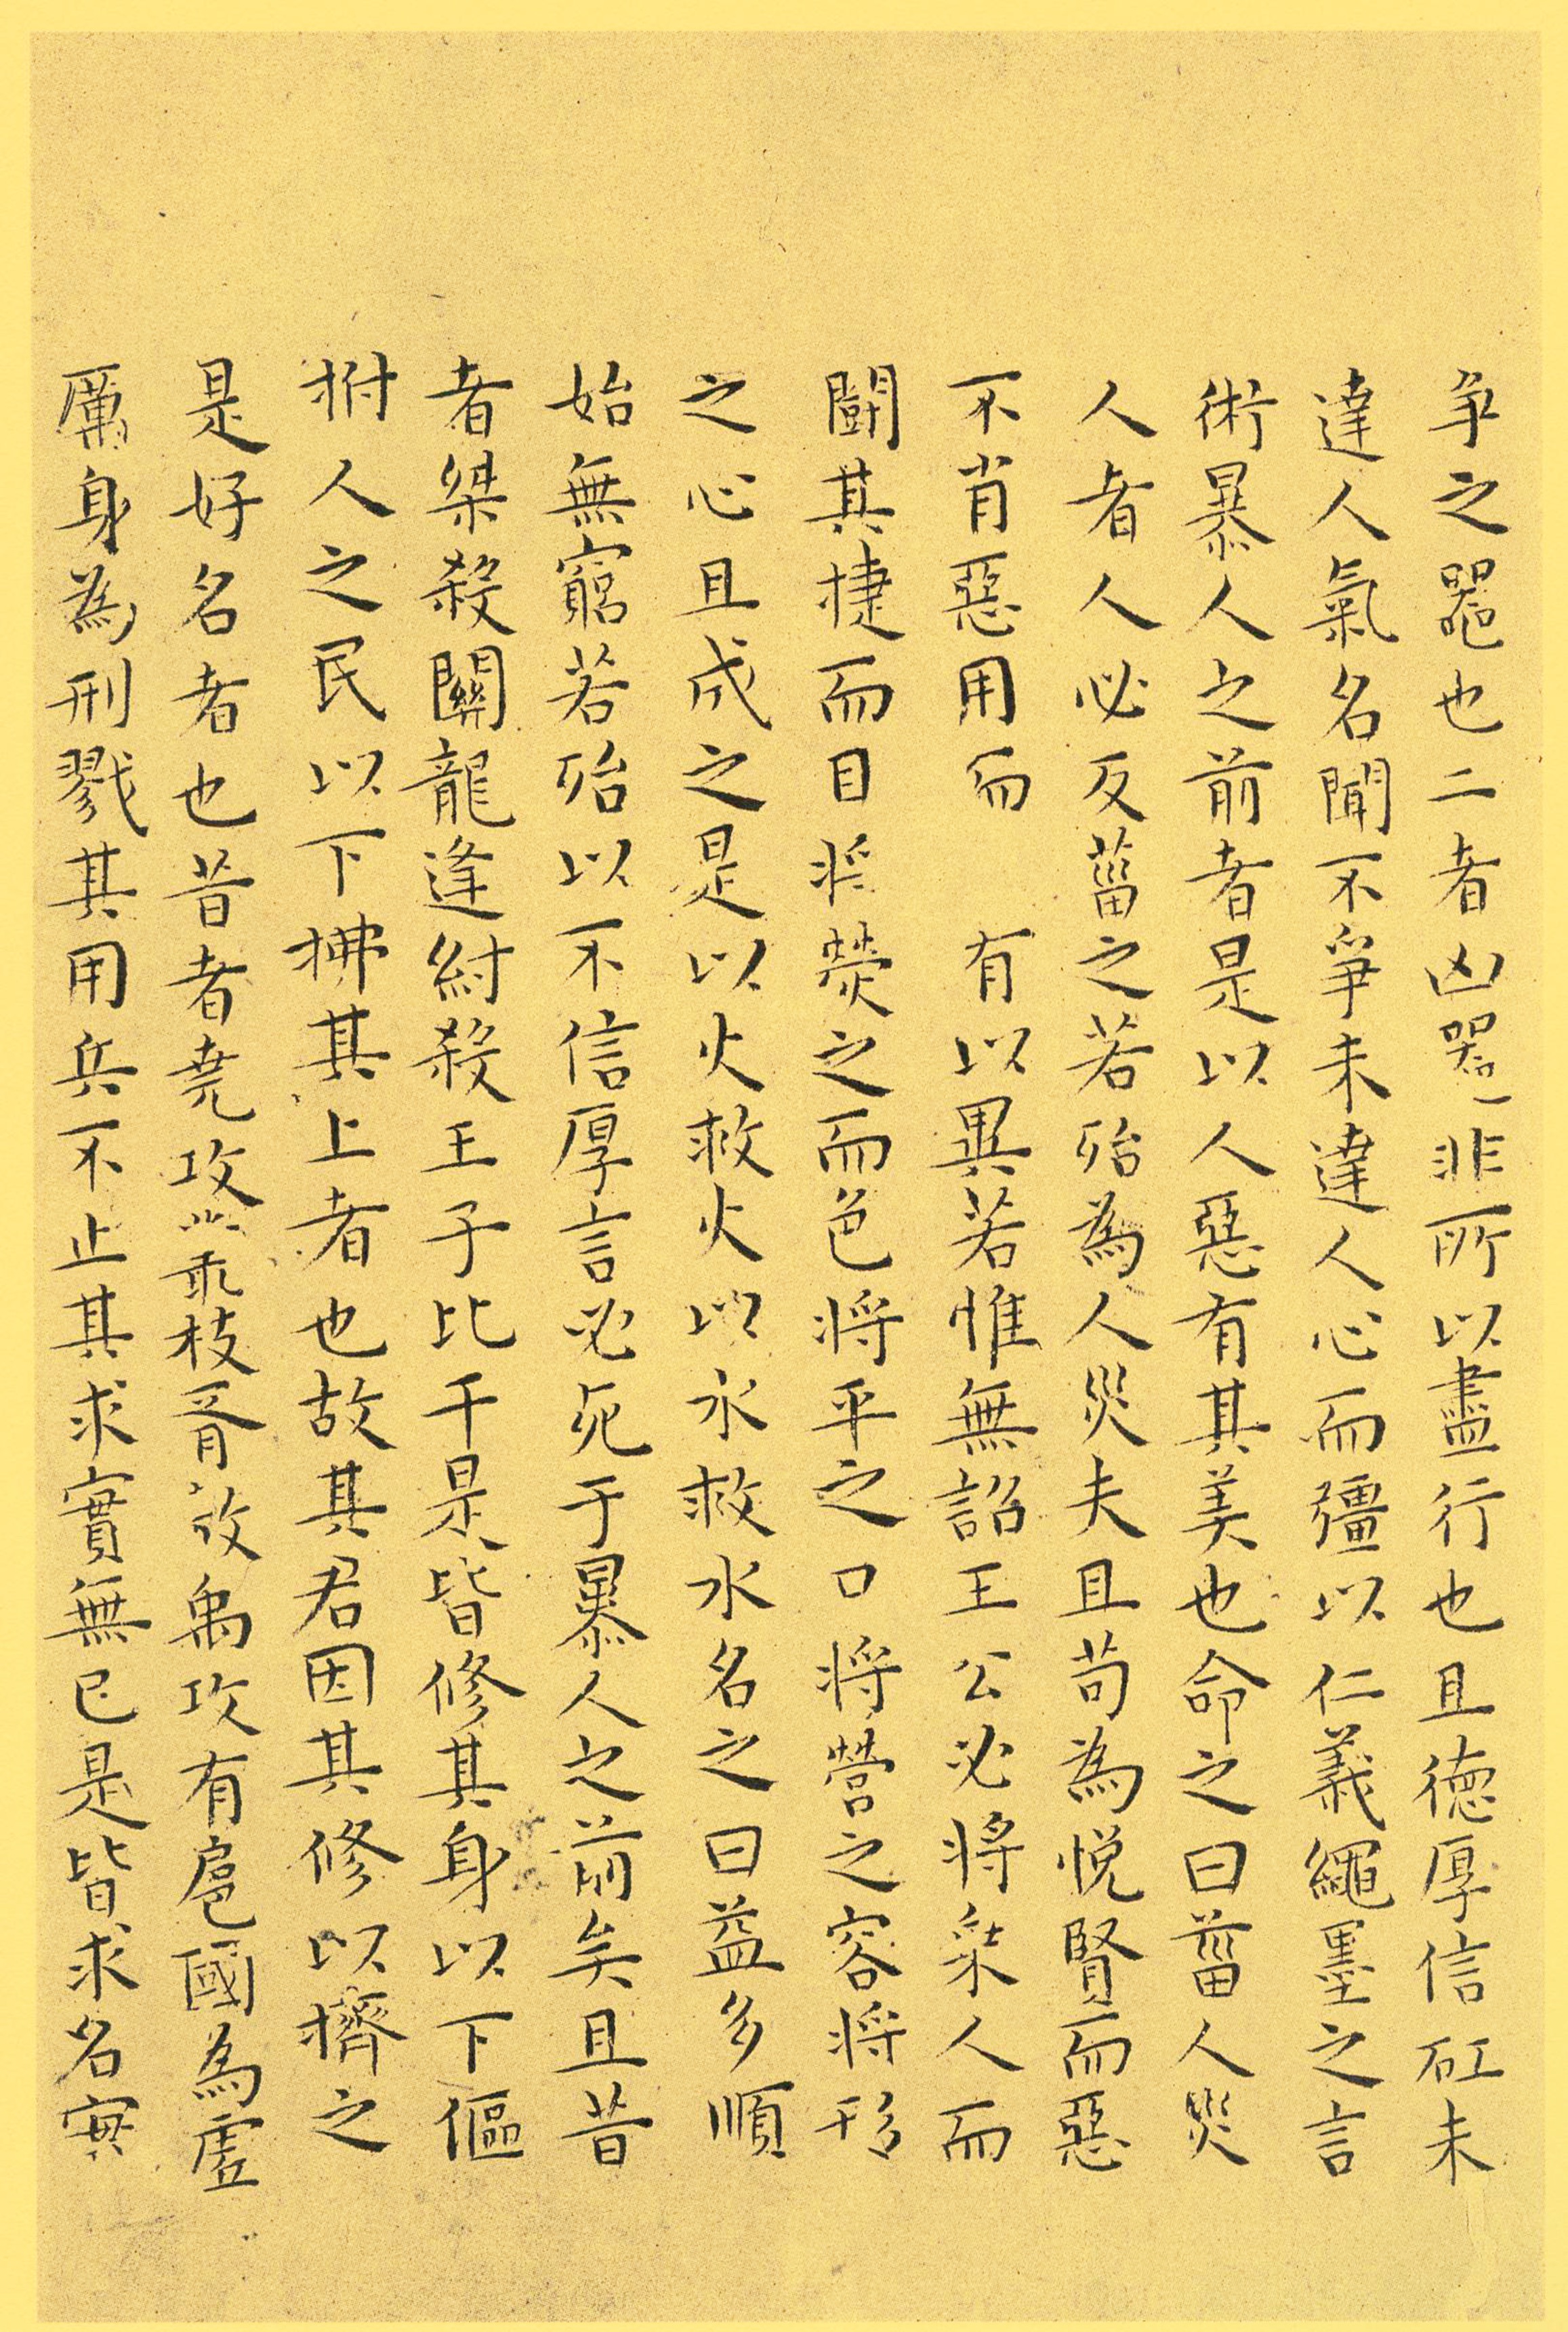 争之噐也二者凶器非所以盡行也且德厚信矼未
達人氣名聞不爭未達人心而彊以仁義繩墨之言
術暴人之前者是以人惡有其美也命之曰菑人災
人者人必反菑之若殆為人災夫且苟為悅賢而惡
不肖惡用而有以異若惟無詔王公必將乘人而
鬪其捷而目将熒之而色将平之口将營之容将形
之心且成之是以火救火以水救水名之曰益多順
始無窮若殆以不信厚言必死于暴人之前矣且昔
者桀殺關龍逢紂殺王子比干是皆修其身以下傴
拊人之民以下拂其上者也故其君因其修以擠之
是好名者也昔者堯攻叢枝胥敖禹攻有扈國為虛
厲身為刑戮其用兵不止其求實無已是皆求名實